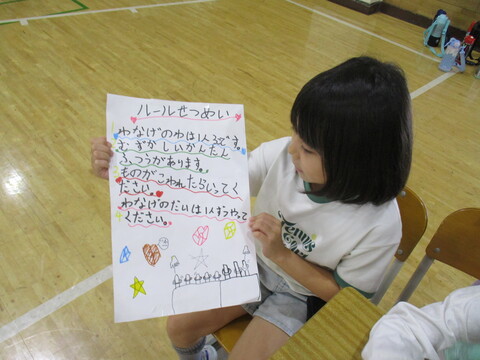 ルールせつめい
わなげのわは1人3つです。
むずかしいかんたん
ふつうがあります。
ものがこわれたらいってく
ださい。
わなげのだいは1人ずつやって
ください。